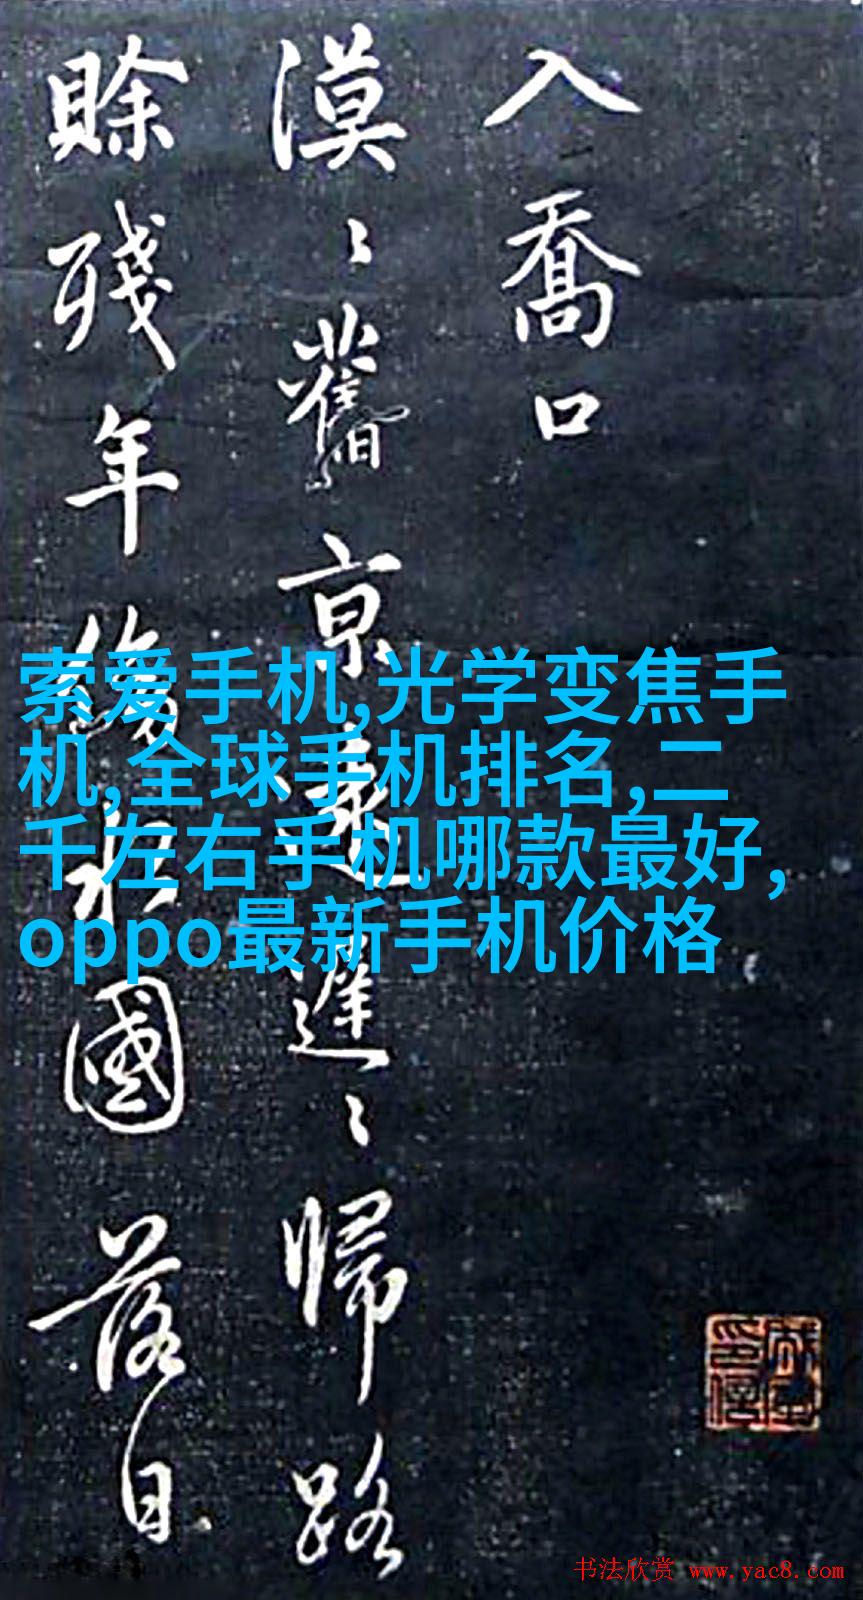 入喬口
漠〻舊京遠遲〻歸路
賖殘年傍水國落日
索爱手机,光学变焦手
机,全球手机排名,二
千左右手机哪款最好,
oppo最新手机价格
书法欣赏 www.yac8.com